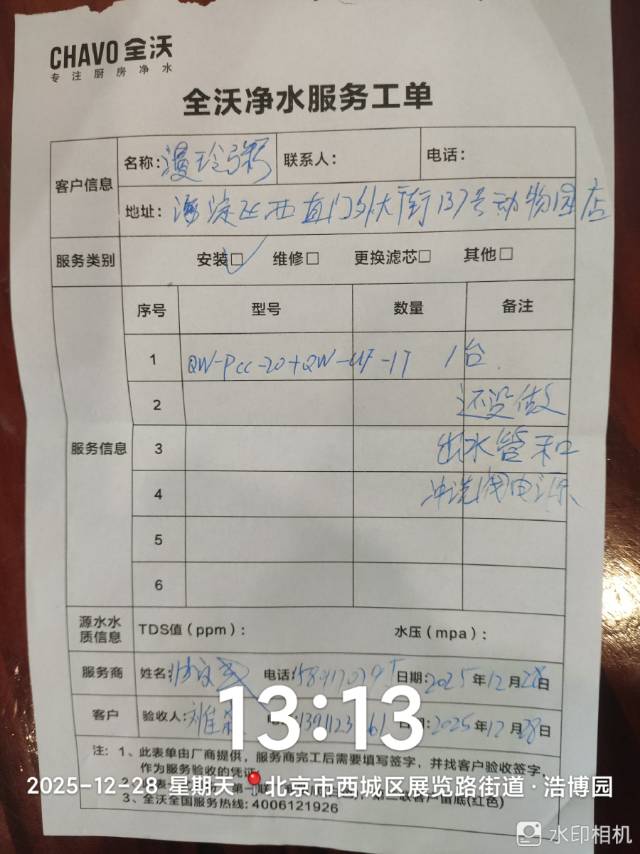 CHAVO 全沃
专注厨房净水
全沃净水服务工单
客户信息
名称：漫玲粥 联系人： 电话：
地址：海淀区西直门外大街137号动物园店
服务类别 安装☑ 维修□ 更换滤芯□ 其他□
服务信息
序号 型号 数量 备注
1 QW-PCC-20+QW-UF-1T 1台
2 还没做
3 出水管和
4 冲洗阀电源
5
6
源水水质信息 TDS值（ppm）： 水压（mpa）：
服务商 姓名： 电话： 日期：2025年12月28日
客户 验收人： 2025年12月28日
13:13
注：1、此表单由厂商提供，服务商完工后需要填写签字，并找客户验收签字，
作为服务验收的凭证
2025-12-28 星期天 北京市西城区展览路街道·浩博园
3、全沃全国服务热线：4006121926
水印相机